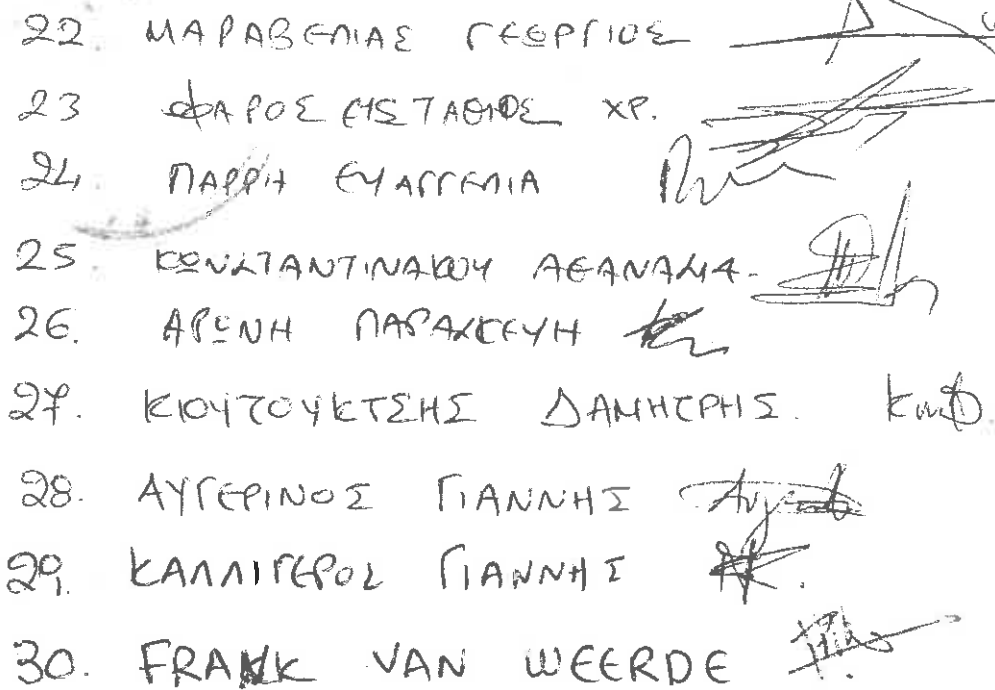 22. ΜΑΡΑΒΕΛΙΑΣ ΓΕΩΡΓΙΟΣ
23 ΦΑΡΟΣ ΕΥΣΤΑΘΙΟΣ ΧΡ.
24. ΠΑΡΡΗ ΕΥΑΓΓΕΛΙΑ
25. ΚΩΝΣΤΑΝΤΙΝΑΚΟΥ ΑΘΑΝΑΣΙΑ
26. ΑΡΩΝΗ ΠΑΡΑΣΚΕΥΗ
27. ΚΙΟΥΤΟΥΚΤΣΗΣ
28. ΑΥΓΕΡΙΝΟΣ ΓΙΑΝΝΗΣ
29. ΚΑΛΛΙΓΕΡΟΣ ΓΙΑΝΝΗΣ
30. FRANK VAN WEERDE